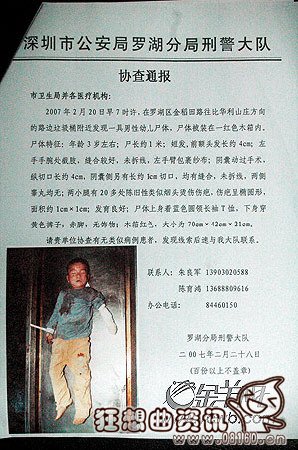 深圳市公安局罗湖分局刑警大队
协查通报
市卫生局并各医疗机构：
2007年2月20日早7时许，在罗湖区金稻田路往比华利山庄方向
的路边垃圾桶附近发现一具男性幼儿尸体，尸体被装在一红色木箱内。
尸体特征：年龄3岁左右；尸长约1米；短发，前额头发长约4cm；左
手手腕处截肢，缝合较好，未拆线，左手臂包裹纱布；阴囊动过手术，
纵切口长约4cm，阴囊侧另有长约3cm切口，均有缝合，未拆线，两侧
睾丸均无；两小腿有20多处陈旧性类似烟头烫伤伤疤，伤疤呈椭圆形，
面积约1cm×1cm；发育良好；尸体上身着蓝色圆领长袖T恤，下身穿
黄色裤子，赤脚，无饰物；木箱红色，大小为70cm×42cm×21cm。
请贵单位协查有无类似病例患者，发现线索后速与我大队联系。
联系人：朱良军 13903020588
陈育鸿 13688809616
办公电话：84460150
罗湖分局刑警大队
二00七年二月二十八日
（百份以上不盖章）
狂想曲资讯
www.08160.cn